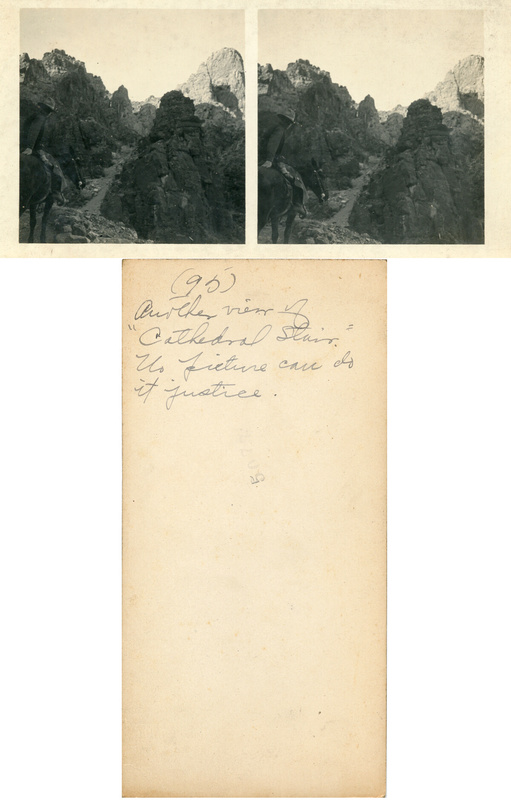 (95)
Another view of
"Cathedral Stair."
No picture can do
it justice.